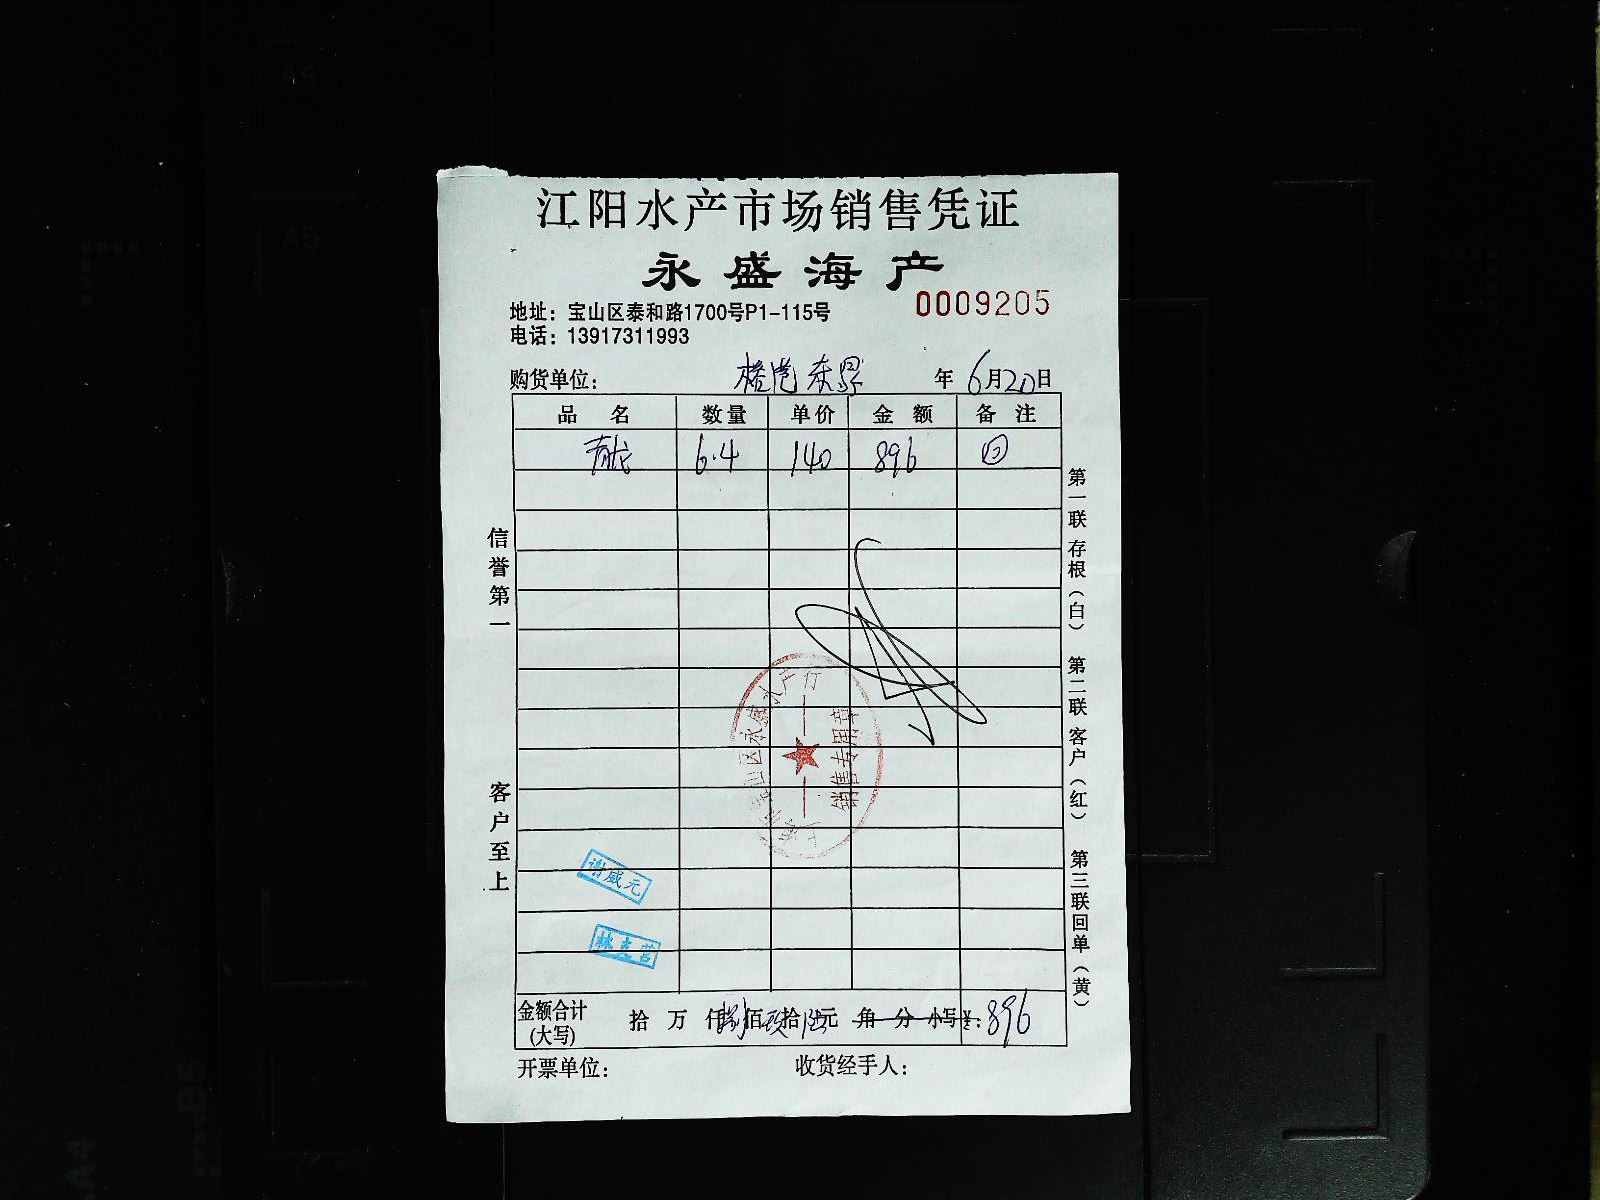 江阳水产市场销售凭证
永盛海产
0009205
地址：宝山区泰和路1700号P1-115号
电话：13917311993
购货单位： 年 6月20日
品 名 数量 单价 金 额 备 注
青龙 6.4 140 896
信誉第一
客户至上
第一联 存根（白） 第二联 客户（红） 第三联 回单（黄）
上海市宝山区永盛水产行
销售专用章
谢威元
林克营
金额合计 拾 万 仟 捌佰 玖拾 陆元 角 分 小写¥：896
(大写)
开票单位： 收货经手人：